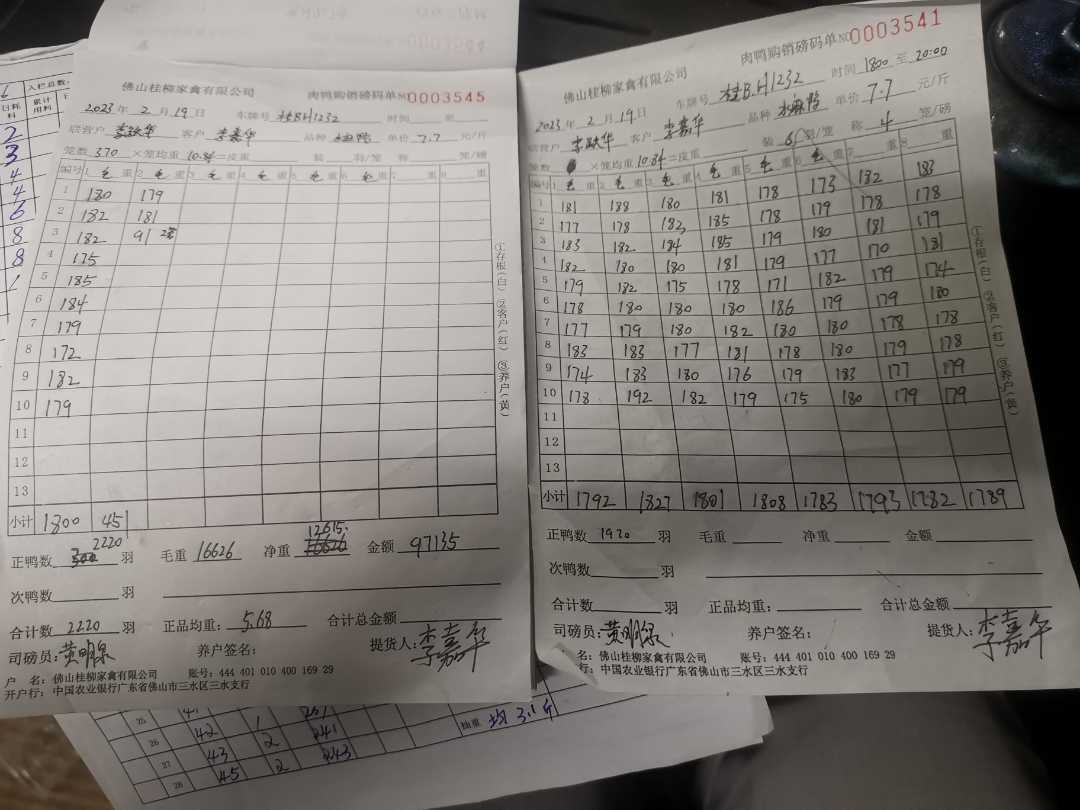 佛山桂柳家禽有限公司 肉鸭购销磅码单 NO 0003545
2023年 2月 19日 车牌号 桂BH1232 时间 至
客户 李嘉华 品种 单价 7.7 元/斤
笼数 370 ×笼均重 10.84 =皮重 装 羽/笼 称 笼/磅
编号 1 毛重 2 毛重 3 毛重 4 毛重 5 毛重 6 毛重 7 重 8 重
1 180 179
2 182 181
3 182 91 2笼
4 175
5 185
6 184
7 179
8 172
9 182
10 179
11
12
13
小计 1800 451
正鸭数 2220 羽 毛重 16626 净重 12615 金额 97135
次鸭数 羽
合计数 2220 羽 正品均重: 5.68 合计总金额
司磅员: 养户签名: 提货人: 李嘉华
户 名: 佛山桂柳家禽有限公司 账号: 444 401 010 400 169 29
开户行: 中国农业银行广东省佛山市三水区三水支行
①存根(白) ②客户(红) ③养户(黄)
佛山桂柳家禽有限公司 肉鸭购销磅码单 NO 0003541
2023年 2月 19日 车牌号 桂BH1232 时间 1800 至 20:00
客户 李嘉华 品种 单价 7.7 元/斤
笼数 ×笼均重 10.84 =皮重 装 6 羽/笼 称 4 笼/磅
编号 1 毛重 2 毛重 3 毛重 4 毛重 5 毛重 6 毛重 7 重 8 重
1 181 188 180 181 178 173 182 183
2 177 178 182 185 178 179 178 178
3 183 182 184 185 179 180 181 179
4 182 180 180 181 179 177 170 181
5 179 182 175 178 171 182 179 174
6 178 180 180 180 186 179 179 180
7 177 179 180 182 180 180 178 178
8 183 183 177 181 178 180 179 178
9 174 183 180 176 179 183 177 179
10 178 192 182 179 175 180 179 179
11
12
13
小计 1792 1827 1801 1808 1783 1793 1782 1789
正鸭数 1920 羽 毛重 净重 金额
次鸭数 羽
合计数 羽 正品均重: 合计总金额
司磅员: 养户签名: 提货人: 李嘉华
名: 佛山桂柳家禽有限公司 账号: 444 401 010 400 169 29
行: 中国农业银行广东省佛山市三水区三水支行
①存根(白) ②客户(红) ③养户(黄)
入栏总数:
日耗料 累计用料
2
3
4
4
6
8
8
25
26 42 1 241
27 43 2 243
28 45 2
抽重 均3.1斤